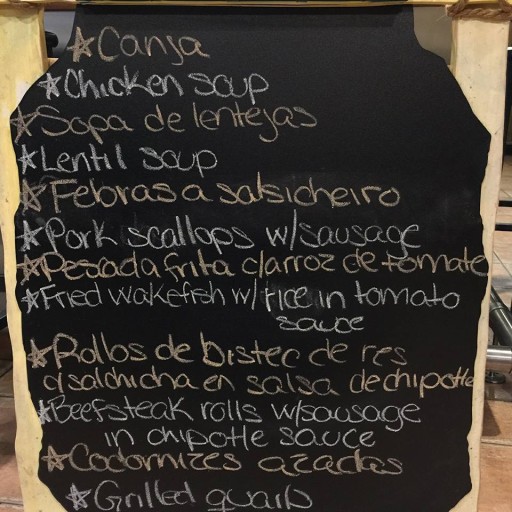 ☆Canja
☆Chicken soup
☆Sopa de lentejas
☆Lentil soup
☆Febras a salsicheiro
☆Pork scallops w/sausage
☆Pescada frita c/arroz de tomate
☆Fried wakefish w/rice in tomato
sauce
☆Rollos de bistec de res
c/salchicha en salsa de chipotle
☆Beefsteak rolls w/sausage
in chipotle sauce
☆Codornizes azadas
☆Grilled quails